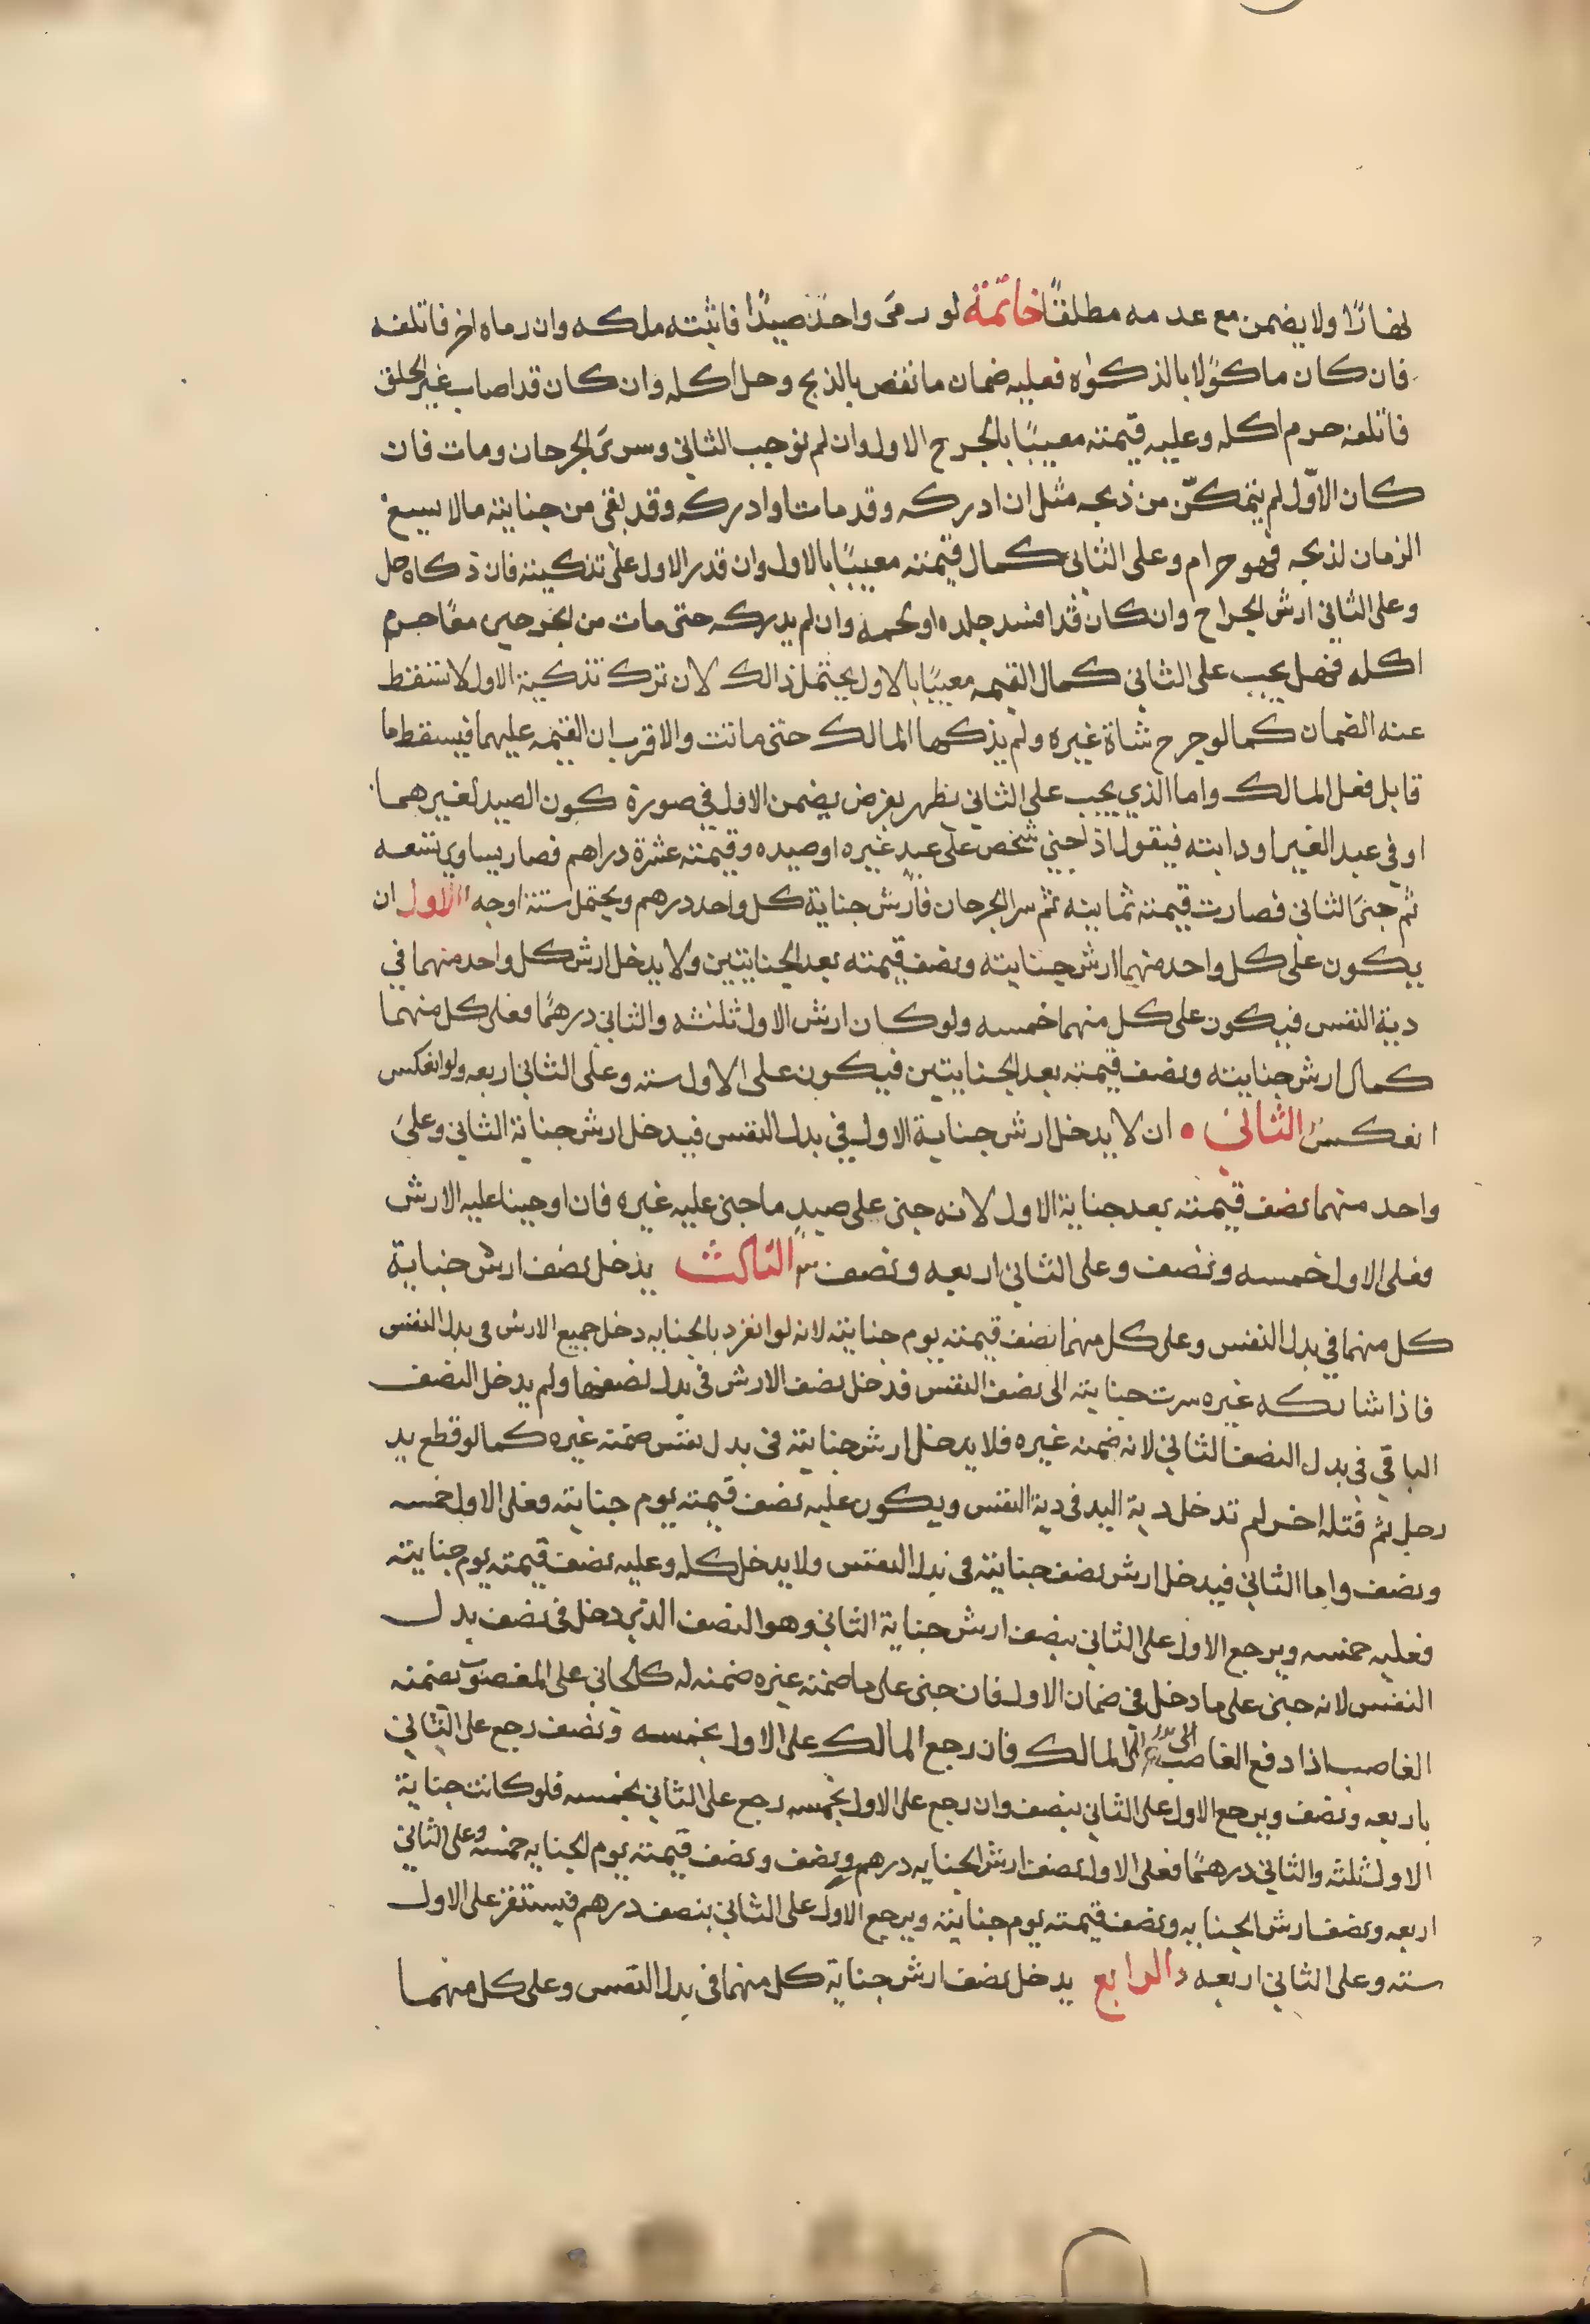 نهارًا ولا يضمن مع عدمه مطلقًا خاتمة لو رمى واحد صيدًا فاثبته ملكه وان رماه اخر فاتلفه
فان كان ماكولا بالذكوة فعليه ضمان ما نقص بالذبح وحل اكله وان كان قد اصاب غير الحلق
فاتلفه حرم اكله وعليه قيمته معيبًا بالجرح الاول وان لم يوجب الثاني وسرى الجرحان ومات فان
كان الاوّل لم يتمكّن من ذبحه مثل ان ادركه وقد مات او ادركه وقد بقى من جنايته مالا يسع
الزمان لذبحه فهو حرام وعلى الثانى كمال قيمته معيبًا بالاول وان قدر الاول على تذكيته فان ذكاه حل
وعلى الثاني ارش الجراح وان كان قد افسد جلده او لحمه وان لم يدركه حتى مات من الجرحين معًا حرم
اكله فهل يجب على الثاني كمال القيمه معيبًا بالاول يحتمل ذالك لان ترك تذكية الاول لا تسقط
عنه الضمان كما لو جرح شاة غيره ولم يذكها المالك حتى ماتت والاقرب ان القيمه عليهما فيسقط ما
قابل فعل المالك واما الذي يجب على الثاني يظهر بفرض يضمن الاول في صورة كون الصيد لغيرهما
او في عبد الغير او دابته فيقول اذا جني شخص على عبد غيره او صيده وقيمته عشرة دراهم فصار يساوي تسعه
ثم جنى الثاني فصارت قيمته ثمانيه ثم سرا الجرحان فارش جناية كل واحد درهم ويحتمل ستة اوجه الاول ان
يكون على كل واحد منهما ارش جنايته ونصف قيمته بعد الجنايتين ولا يدخل ارش كل واحد منهما في
دية النفس فيكون على كل منهما خمسه ولو كان ارش الاول ثلثه والثاني درهمًا فعلى كل منهما
كمال ارش جنايته ونصف قيمته بعد الجنايتين فيكون على الاول سته وعلى الثاني اربعه ولو انعكس
انعكس الثاني • ان لا يدخل ارش جناية الاول في بدل النفس فيدخل ارش جناية الثاني وعلى
واحد منهما نصف قيمته بعد جناية الاول لانه جنى على صيد ما جنى عليه غيره فان اوجبنا عليه الارش
فعلى الاول خمسه ونصف وعلى الثاني اربعه ونصف الثالث يدخل نصف ارش جناية
كل منهما في بدل النفس وعلى كل منهما نصف قيمته يوم جنايته لانه لو انفرد بالجنايه دخل جميع الارش فى بدل النفس
فاذا شاركه غيره سرت جنايته الى نصف النفس فدخل نصف الارش فى بدل نصفها ولم يدخل النصف
الباقي فى بدل النصف الثاني لانه ضمنه غيره فلا يدخل ارش جنايته فى بدل نفس ضمنه غيره كما لو قطع يد
رجل ثم قتله اخر لم تدخل دية اليد فى دية النفس ويكون عليه نصف قيمته يوم جنايته وفعلى الاول خمسه
ونصف واما الثاني فيدخل ارش نصف جنايته فى بدل النفس ولا يدخل كله وعليه نصف قيمته يوم جنايته
فعليه خمسه ويرجع الاول على الثاني بنصف ارش جناية الثاني وهو النصف الذي دخل فى نصف بدل
النفس لانه جنى على ما دخل فى ضمان الاول فان جنى على ما ضمنه غيره ضمنه له كالجاني على المغصوب بضمنه
الغاصب اذا دفع الغاصب الى المالك فان رجع المالك على الاول بخمسه ونصف رجع على الثاني
باربعه ونصف ويرجع الاول على الثاني بنصف وان رجع على الاول بخمسه رجع على الثاني بخمسه فلو كانت جناية
الاول ثلثه والثاني درهمًا فعلى الاول نصف ارش الجنايه درهم ونصف ونصف قيمته يوم الجنايه خمسه وعلى الثاني
اربعه ونصف ارش الجنايه ونصف قيمته يوم جنايته ويرجع الاول على الثاني بنصف درهم فيستقر على الاول
سته وعلى الثاني اربعه الرابع يدخل نصف ارش جناية كل منهما فى بدل النفس وعلى كل منهما